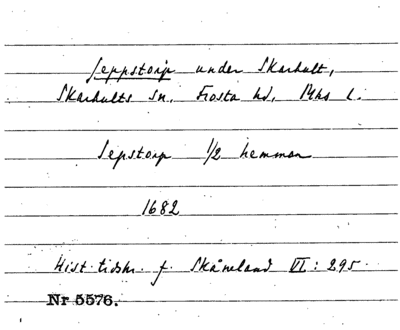 Jeppstorp under Skarhult,
Skarhults sn, Frosta hd, Mhs l.
Jepstorp 1/2 hemman
1682
Hist. tidskr. f. Skåneland VI: 295.
Nr 5576.